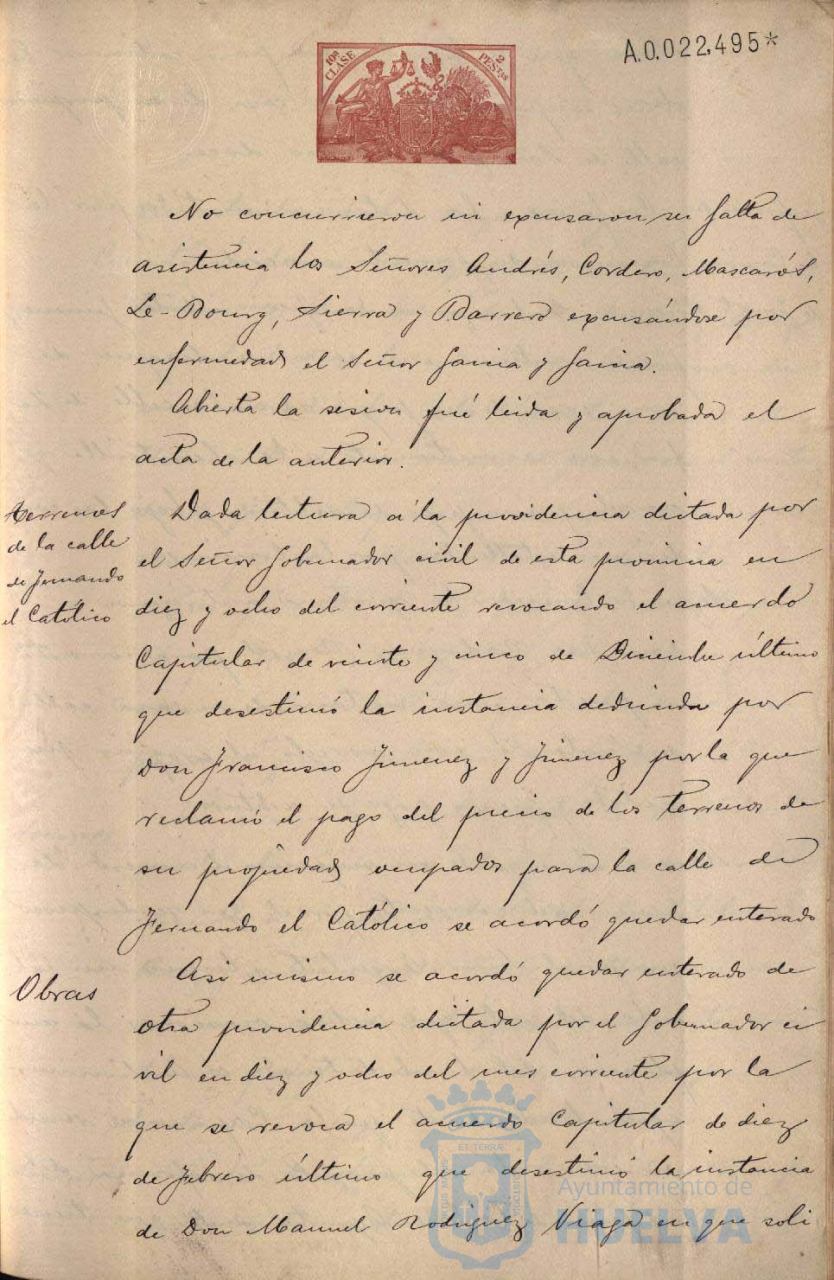 10ª CLASE
2 PESTAS
A.0.022,495*
No concurrieron ni excusaron su falta de
asistencia los Señores Andrés, Cordero, Mascarós,
Le-Bourg, Sierra y Barrero excusándose por
enfermedad el Señor Garcia y Garcia.
Abierta la sesion fué leida y aprobada el
acta de la anterior.
terrenos
de la calle
de Fernando
el Católico
Dada lectura á la providencia dictada por
el Señor Gobernador civil de esta provincia en
diez y ocho del corriente revocando el acuerdo
Capitular de veinte y cinco de Diciembre último
que desestimó la instancia deducida por
Don Francisco Jimenez y Jimenez por la que
reclamó el pago del precio de los terrenos de
su propiedad ocupados para la calle de
Fernando el Católico se acordó quedar enterado
Obras
Asi mismo se acordó quedar enterado de
otra providencia dictada por el Gobernador ci
vil en diez y ocho del mes corriente por la
que se revoca el acuerdo Capitular de diez
de febrero último que desestimó la instancia
de Don Manuel Rodriguez en que soli
Ayuntamiento de
HUELVA